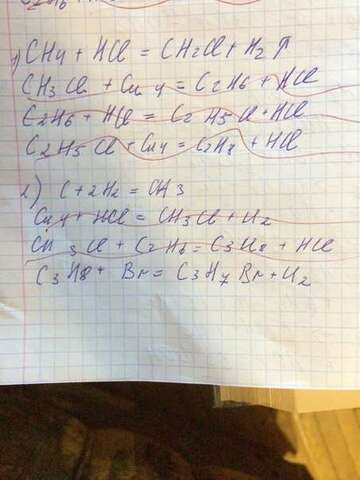 1) CH4 + HCl = CH3Cl + H2↑
CH3Cl + CH4 = C2H6 + HCl
C2H6 + HCl = C2H5Cl + HCl
C2H5Cl + CH4 = C3H8 + HCl
2) C + 2H2 = CH3
CH4 + HCl = CH3Cl + H2
CH3Cl + C2H6 = C3H8 + HCl
C3H8 + Br = C3H7Br + H2